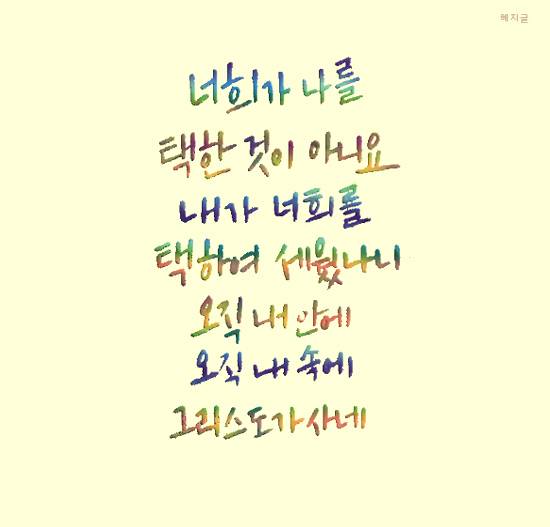 혜지글
너희가 나를
택한 것이 아니요
내가 너희를
택하여 세웠나니
오직 내 안에
오직 내 속에
그리스도가 사네